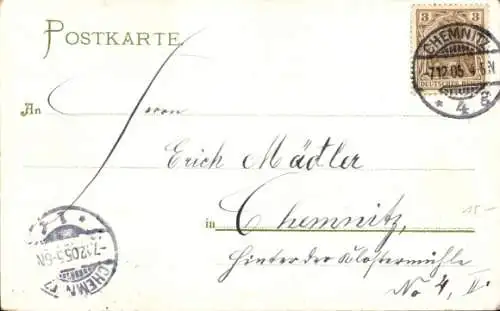 POSTKARTE
3
DEUTSCHES REICH
CHEMNITZ
7.12.05. 4-5N
* 4 g
An Herrn
Erich Mädler
in Chemnitz,
Hinter der Klostermühle
No 4, II.
15-
1
-7.12.05.5-6N
CHEMN